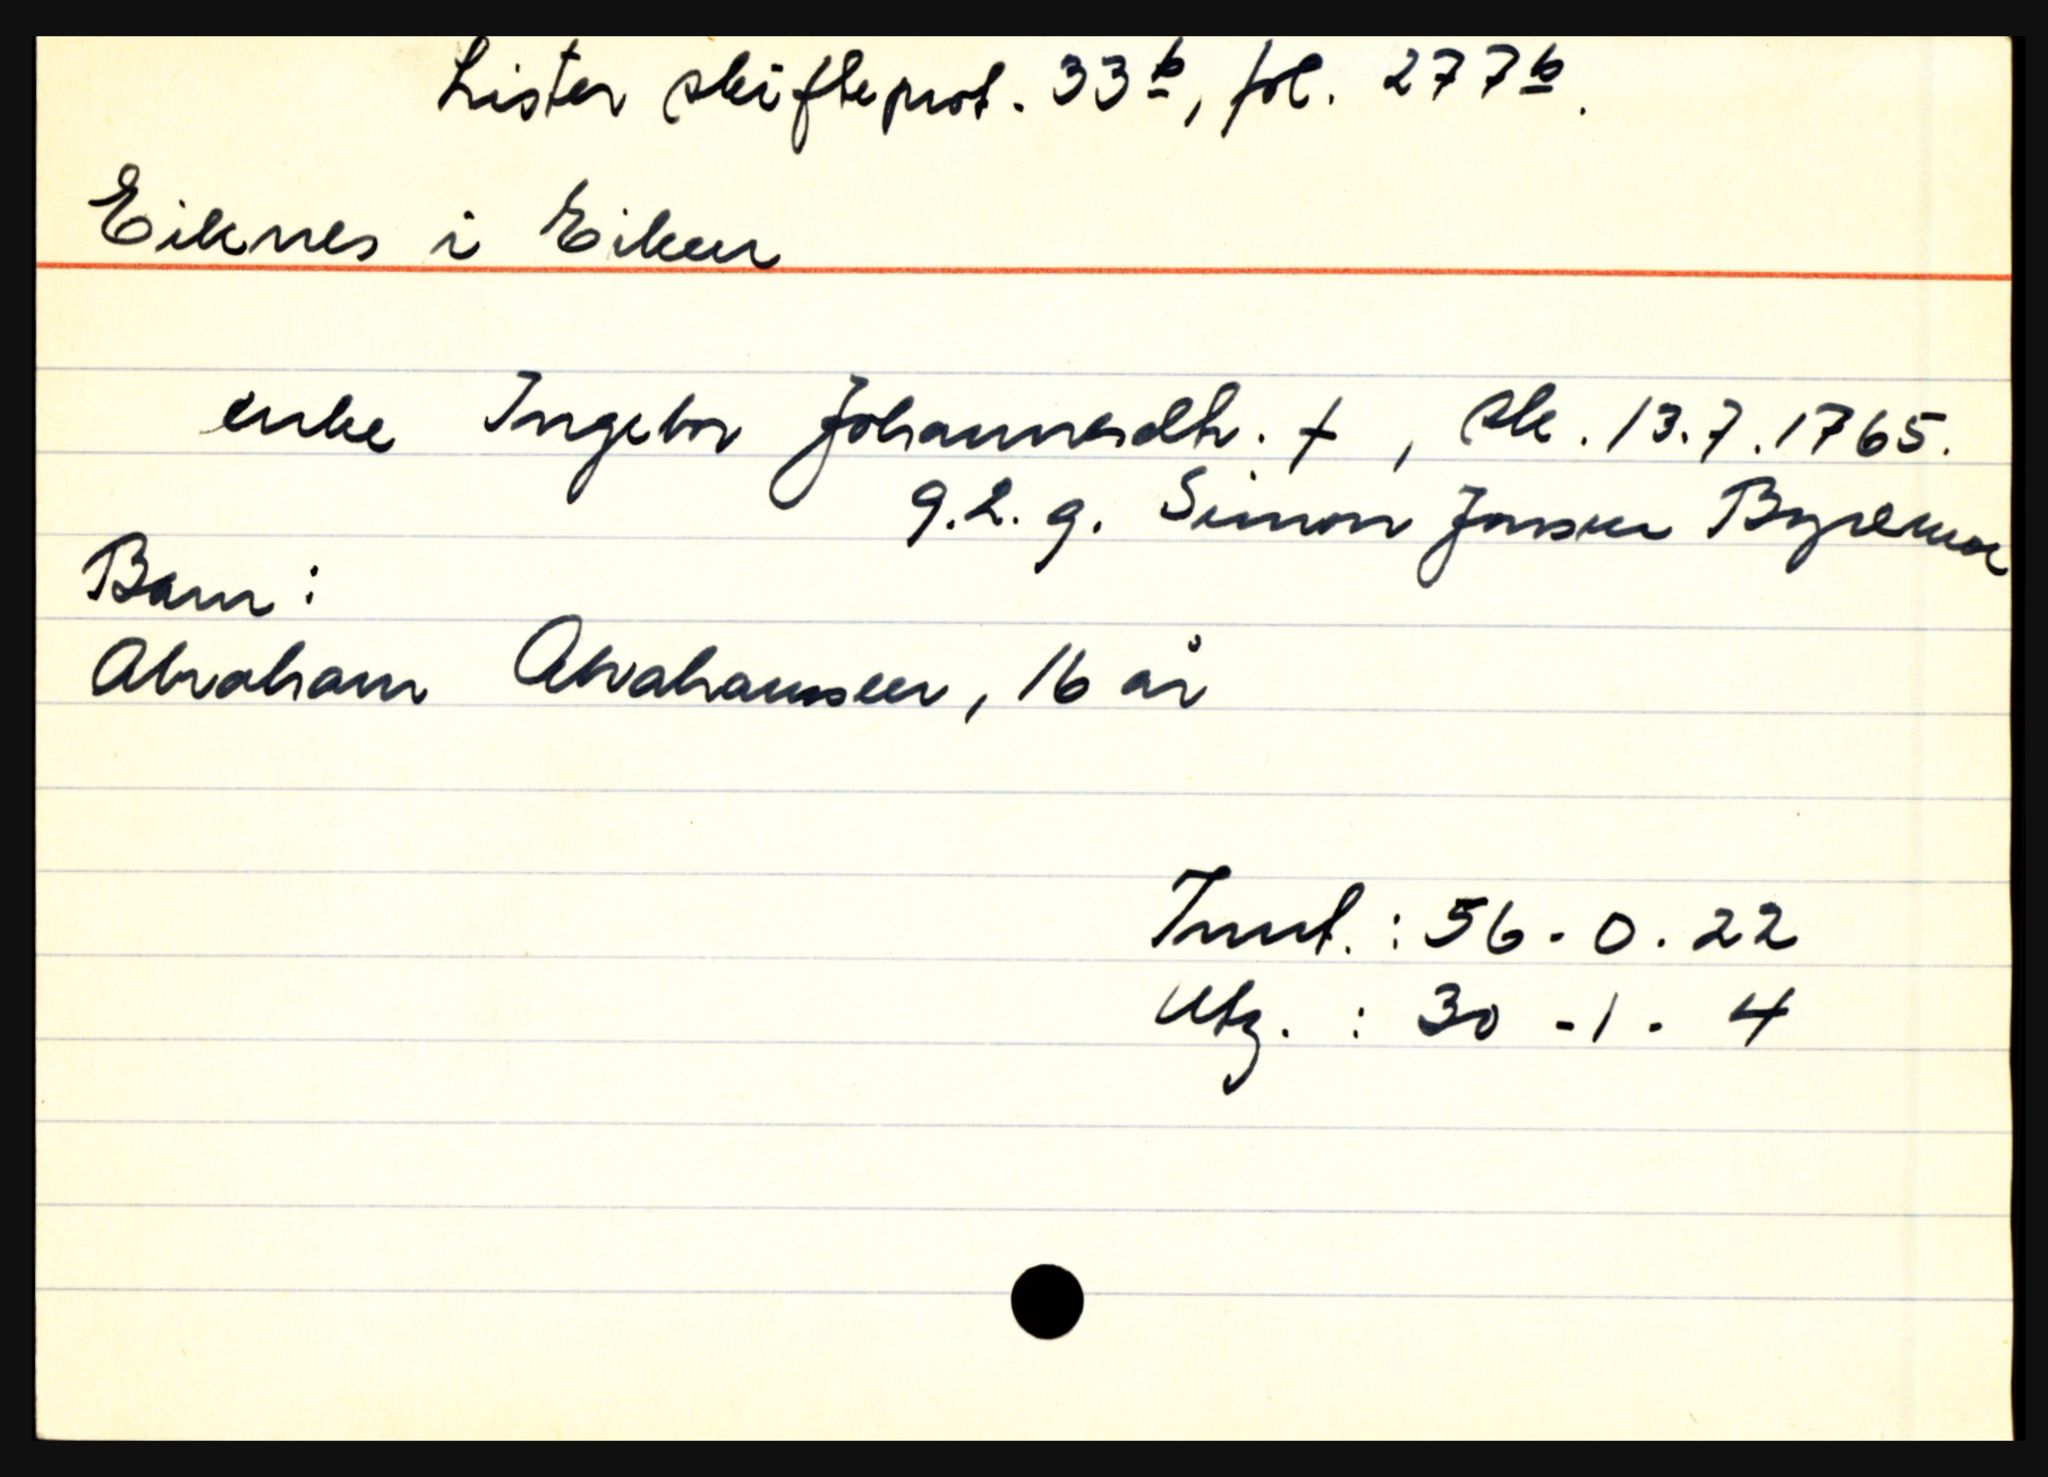 Lister skifteprot. 33b, fol. 277b.
Eiknes i Eiken
enke Ingebor Johannesdtr. +, sk. 13.7.1765.
g. 2. g. Simon Jonsen Byremoe
Barn:
Abraham Abrahamsen, 16 år
Innt. : 56 - 0 - 22
Utg. : 30 - 1 - 4